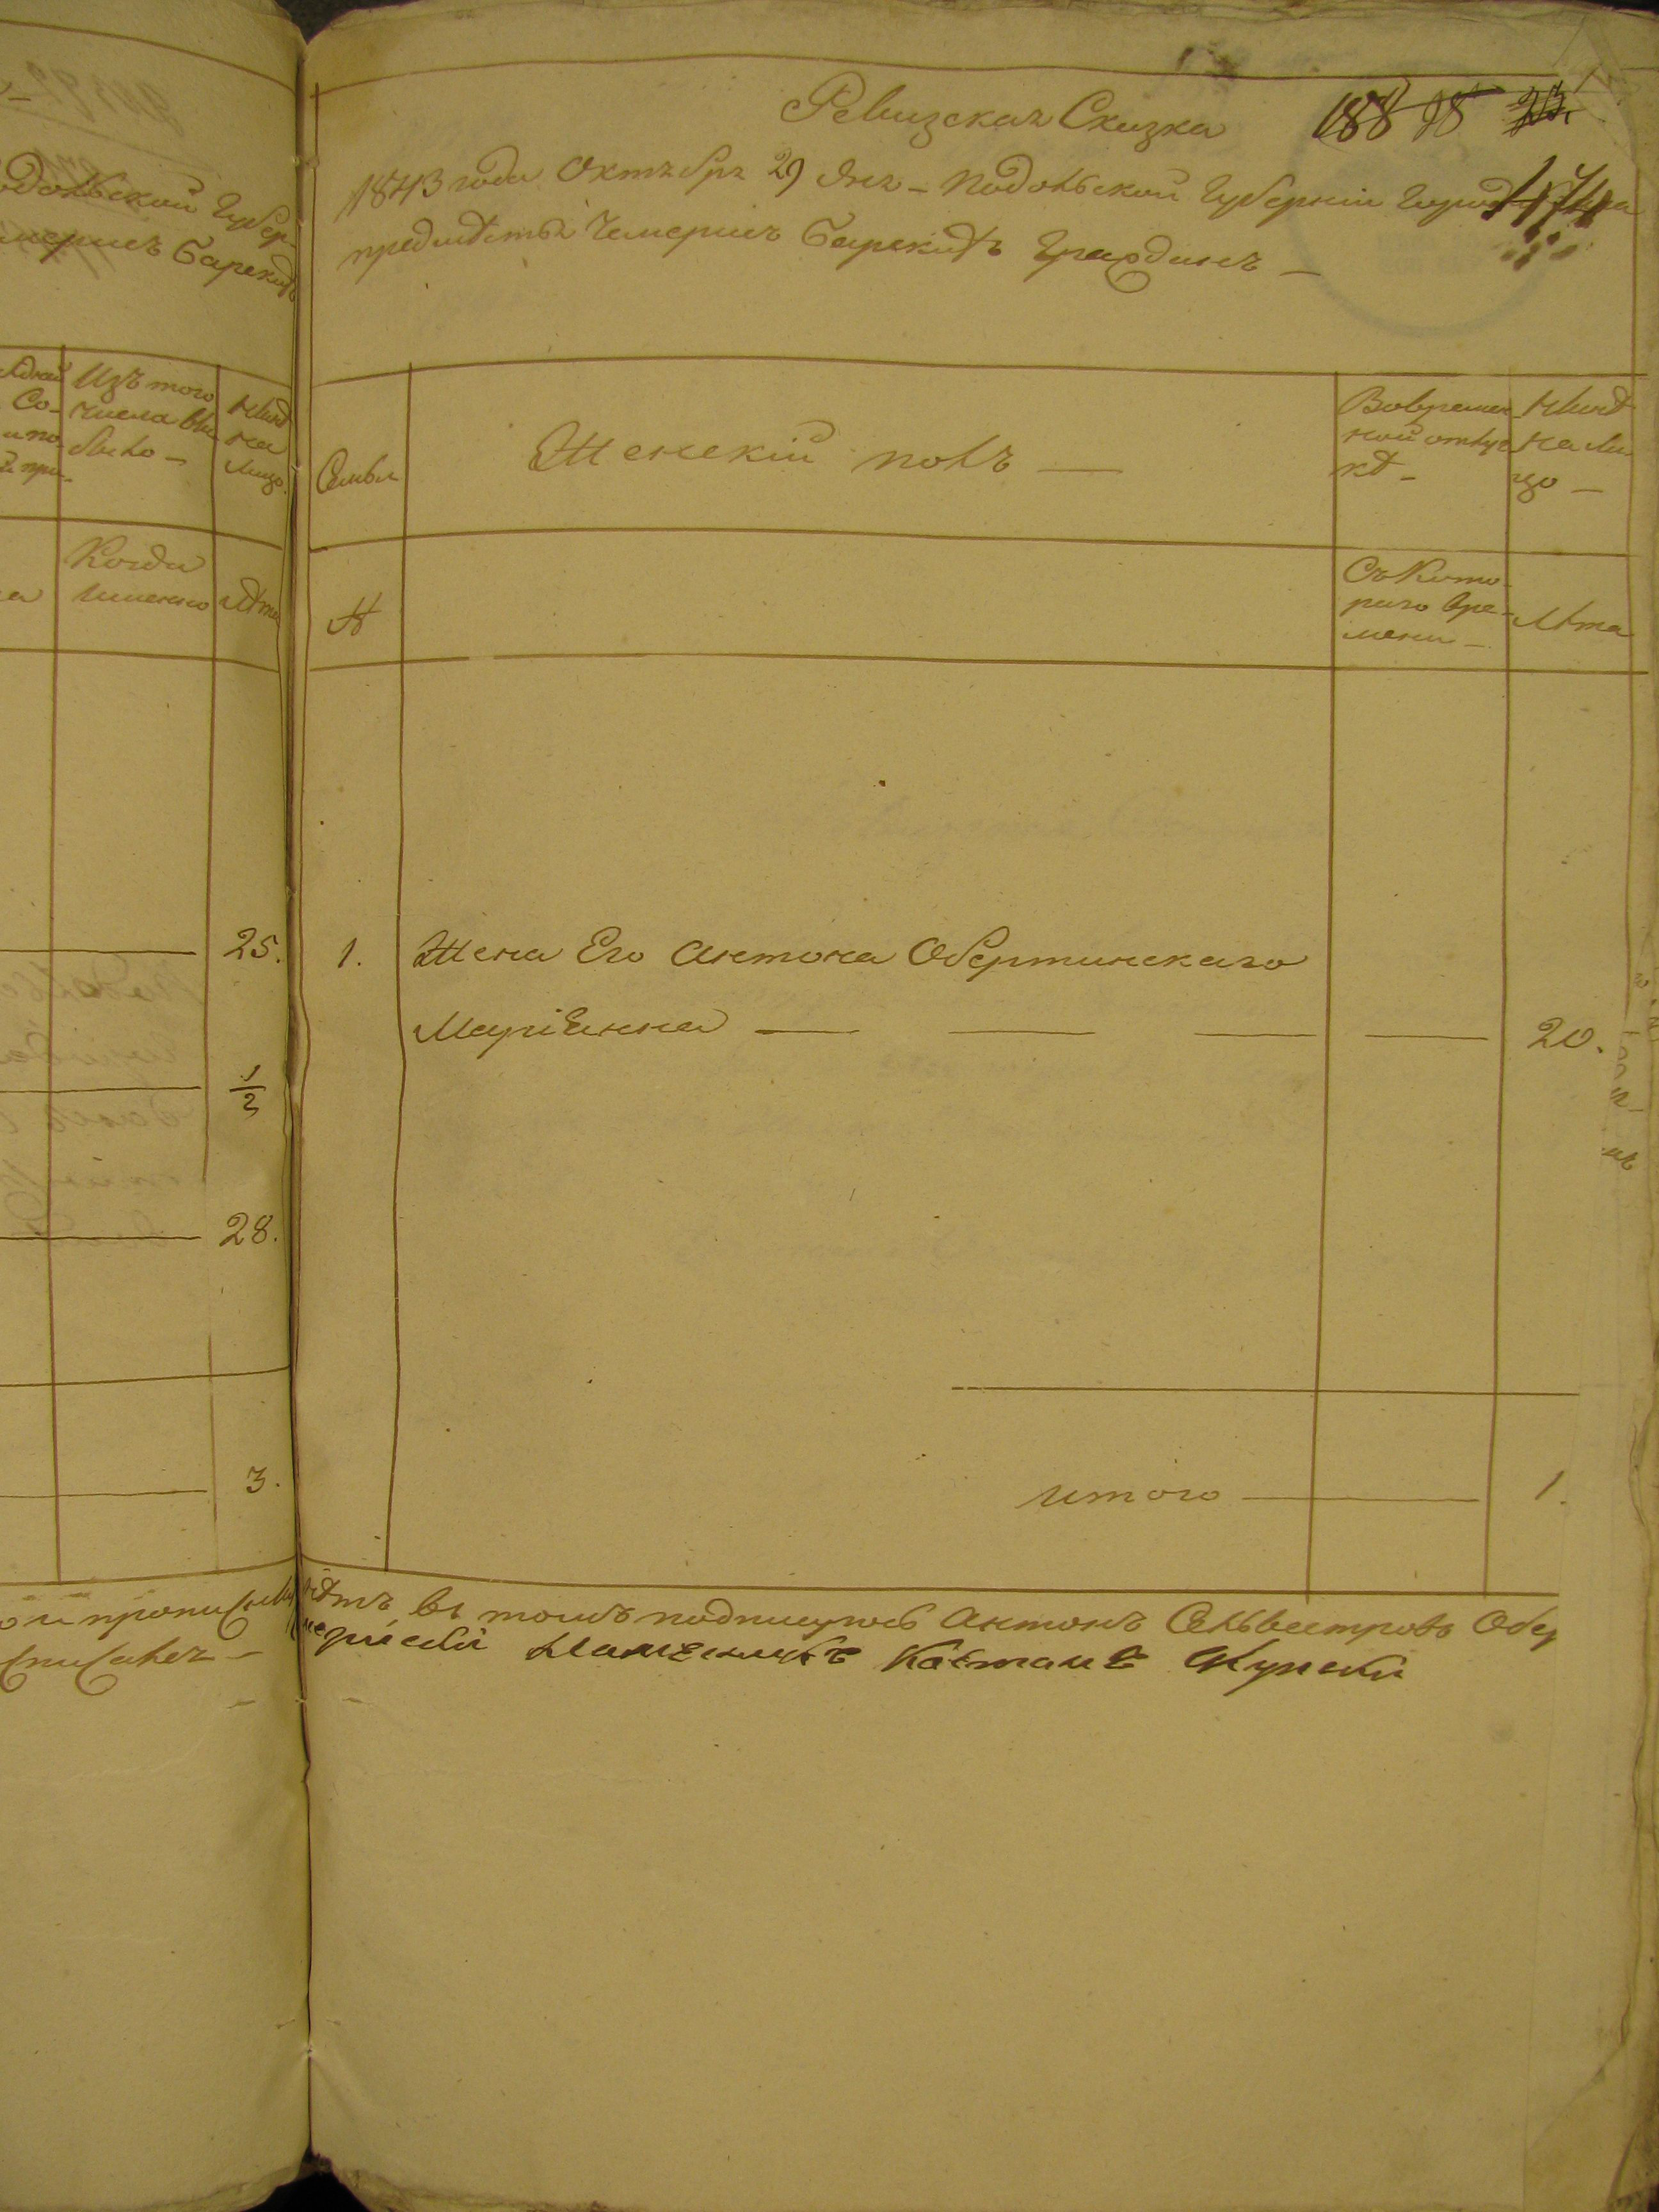 одольской Губер-
мерисъ Барскихъ
Изъ того
числа вы
было —
Нынѣ
на
лицо.
Когда
именно
лѣта
25.
1/2
28.
3.
Ревизская Сказка
188 98 23.
174
1843 года Октября 29 дня — Подольской Губерніи Города Бара
предмѣстья Чемерисъ Барскихъ Гражданъ —
Семьи
Женскій полъ —
Вовремен
ной отлуч
кѣ —
Нынѣ
на ли
цо —
№
Съ Кото
раго Вре-
мени —
Лѣта
1. Жена Его Антона Обертинскаго
Маріянна — — — — 20.
итого — 1.
нѣтъ, въ томъ подписуюсь Антонъ Сильвестровъ Обер